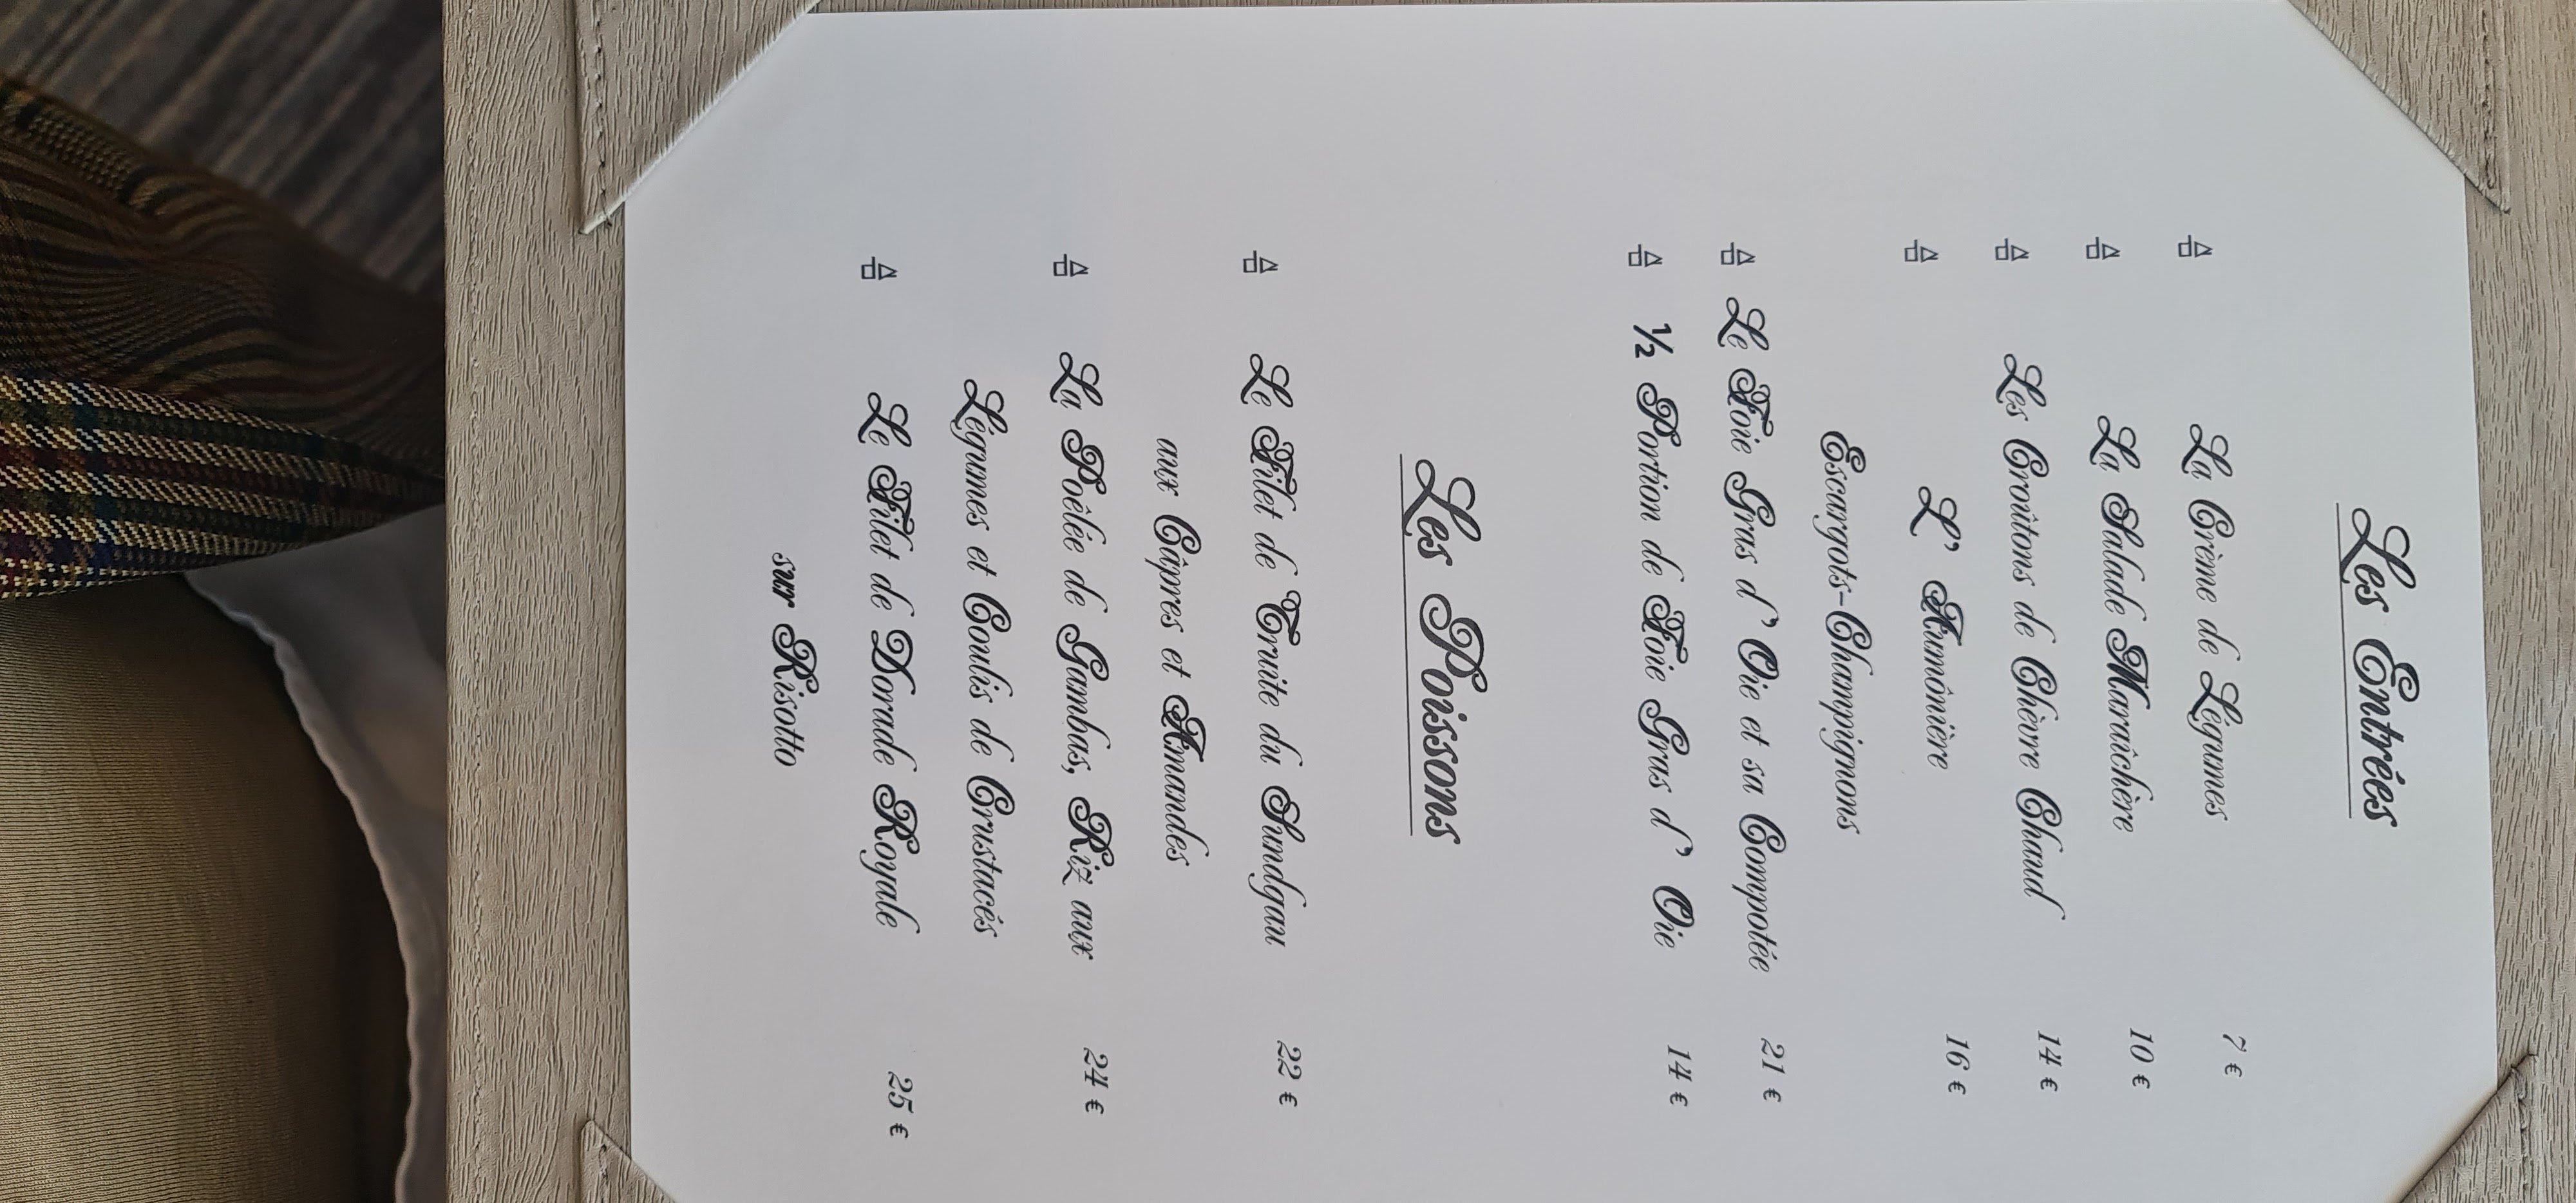 Les Entrées
La Crème de Légumes 7 €
La Salade Maraîchère 10 €
Les Croûtons de Chèvre Chaud 14 €
L' Aumônière 16 €
Escargots-Champignons
Le Foie Gras d' Oie et sa Compotée 21 €
½ Portion de Foie Gras d' Oie 14 €
Les Poissons
Le Filet de Truite du Sundgau 22 €
aux Câpres et Amandes
La Poêlée de Gambas, Riz aux 24 €
Légumes et Coulis de Crustacés
Le Filet de Dorade Royale 25 €
sur Risotto